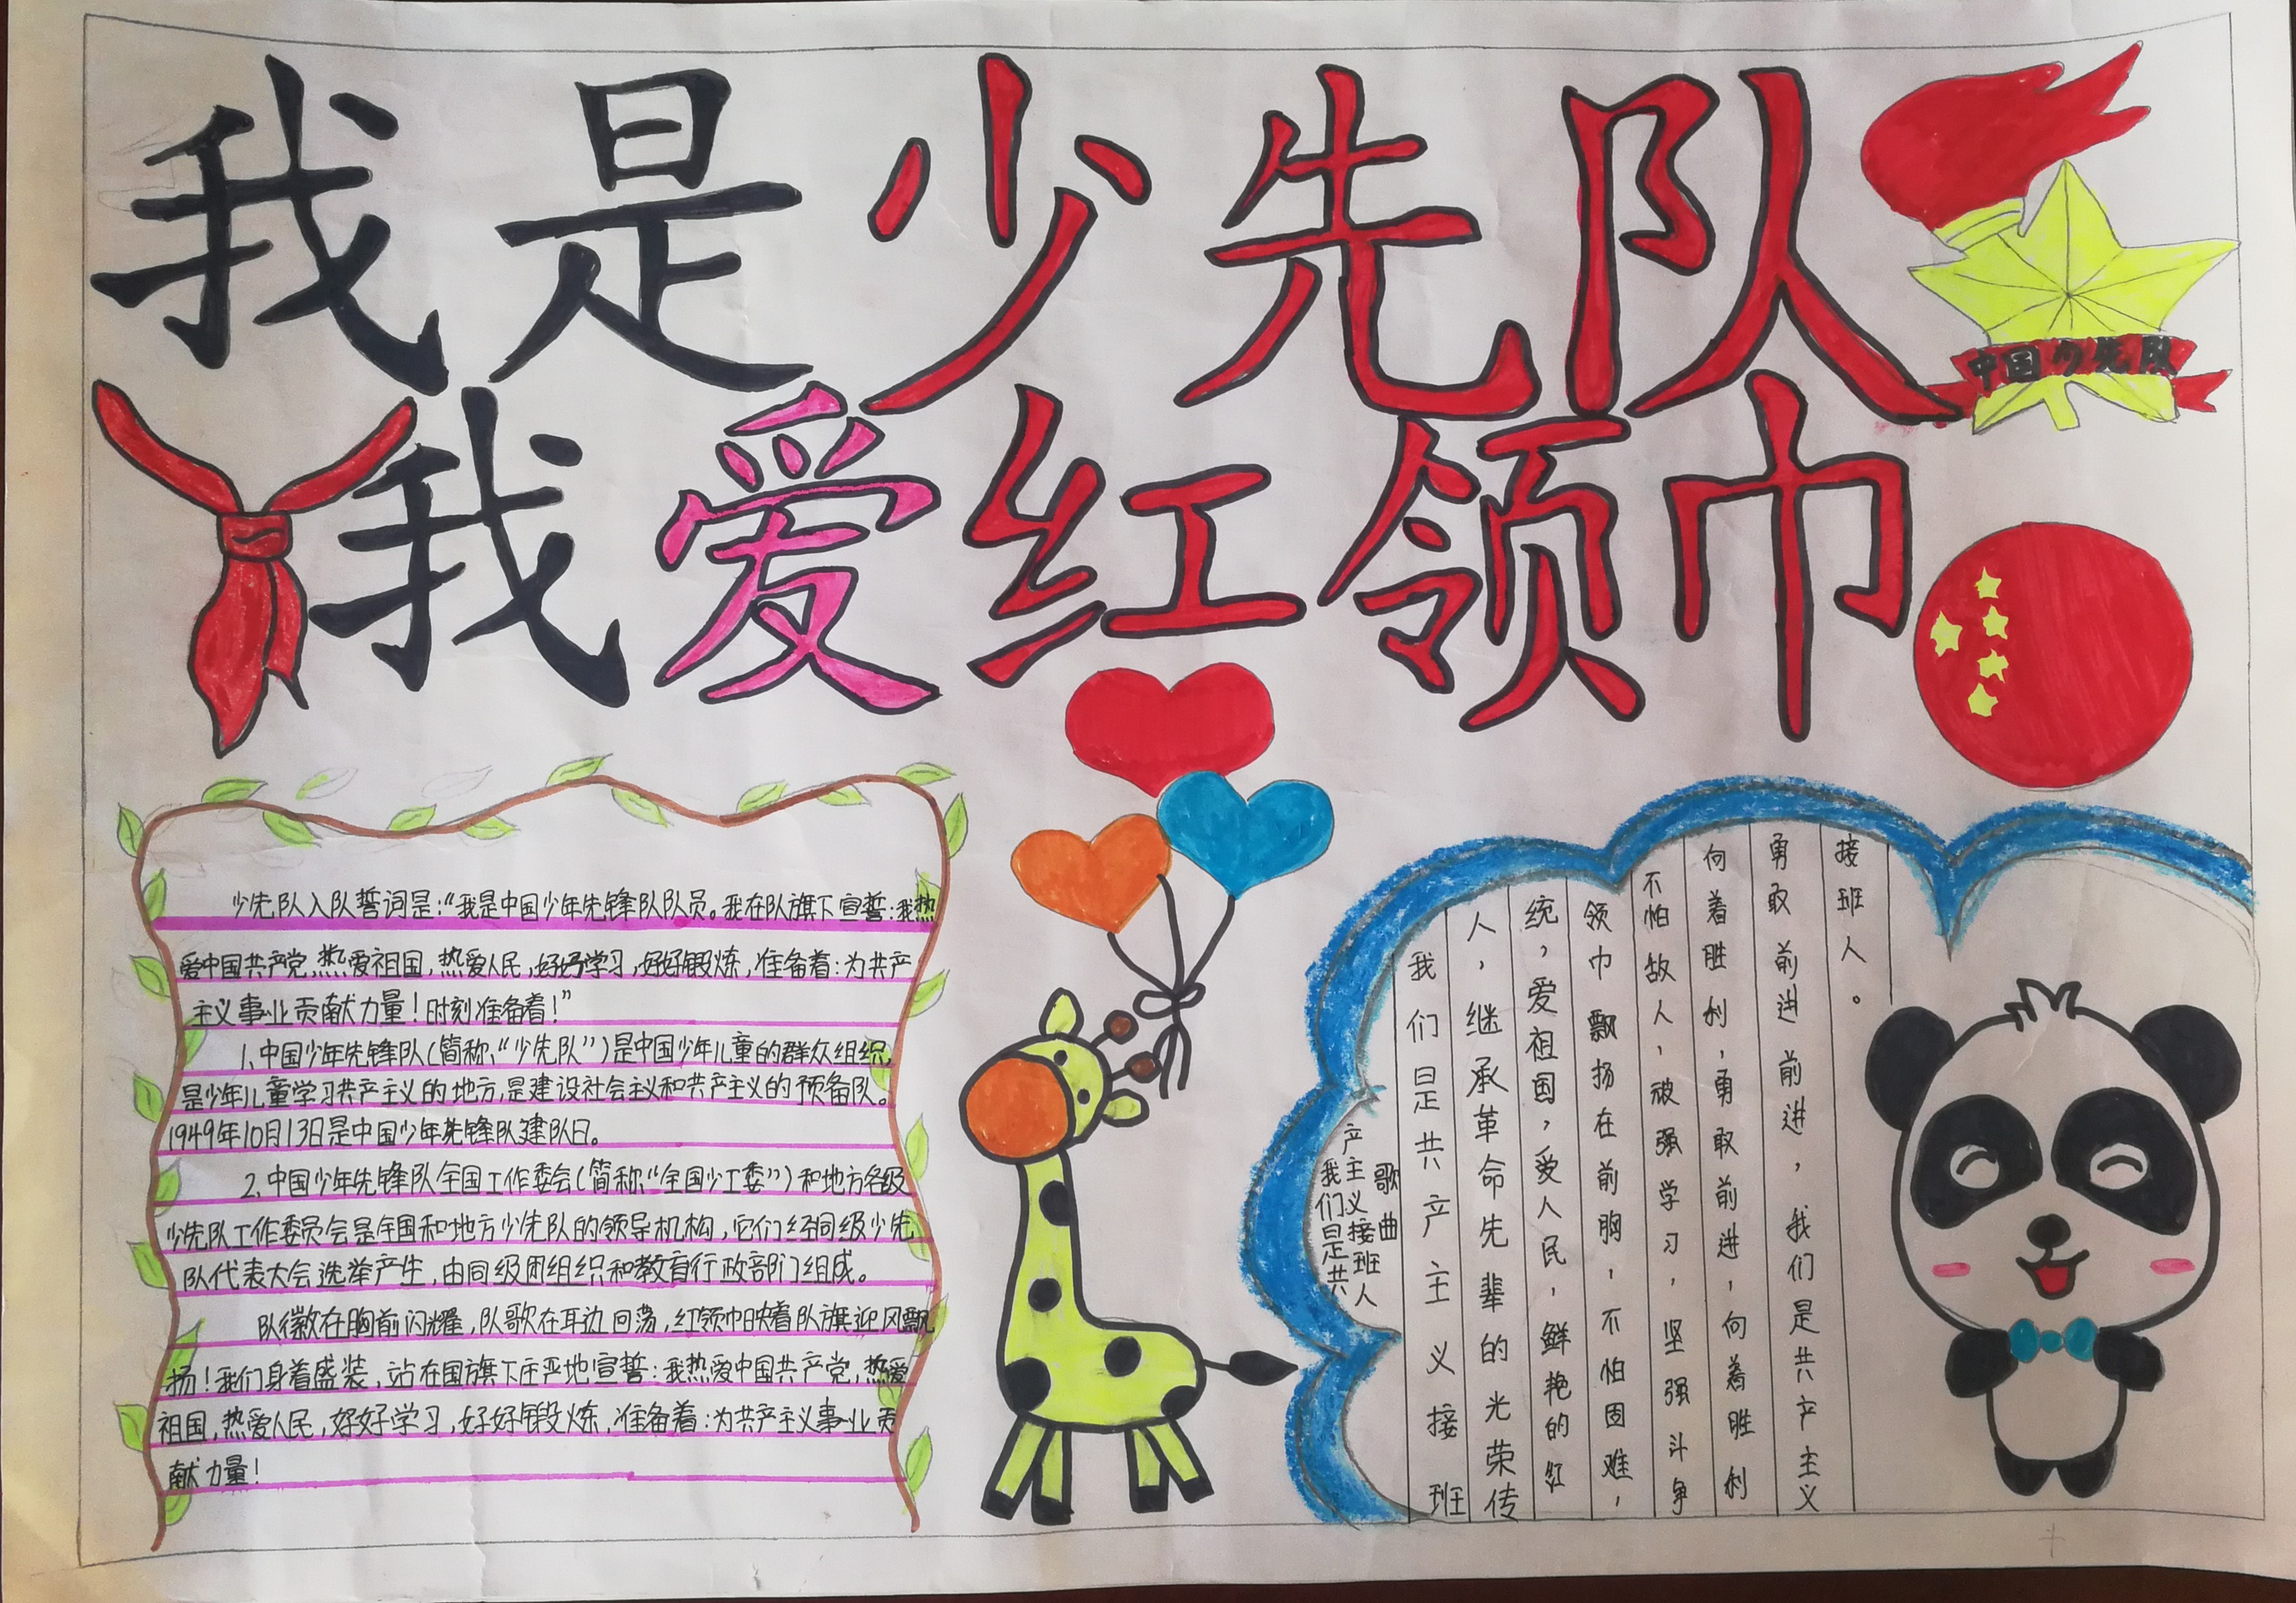 我是少先队
中国少先队
我爱红领巾
少先队入队誓词是:“我是中国少年先锋队队员。我在队旗下宣誓:我热
爱中国共产党,热爱祖国,热爱人民,好好学习,好好锻炼,准备着:为共产
主义事业贡献力量!时刻准备着!”
1、中国少年先锋队(简称、“少先队”)是中国少年儿童的群众组织,
是少年儿童学习共产主义的地方,是建设社会主义和共产主义的预备队。
1949年10月13日是中国少年先锋队建队日。
2、中国少年先锋队全国工作委会(简称“全国少工委”)和地方各级
少先队工作委员会是全国和地方少先队的领导机构,它们经同级少先
队代表大会选举产生,由同级团组织和教育行政部门组成。
队徽在胸前闪耀,队歌在耳边回荡,红领巾映着队旗迎风飘
扬!我们身着盛装,站在国旗下庄严地宣誓:我热爱中国共产党,热爱
祖国,热爱人民,好好学习,好好锻炼,准备着:为共产主义事业贡
献力量!
歌曲
我们是共
产主义接班人
我们是共产主义接班
人,继承革命先辈的光荣传
统,爱祖国,爱人民,鲜艳的红
领巾飘扬在前胸,不怕困难,
不怕故人,被强学习,坚强斗争
向着胜利,勇敢前进,向着胜利
勇敢前进前进,我们是共产主义
接班人。